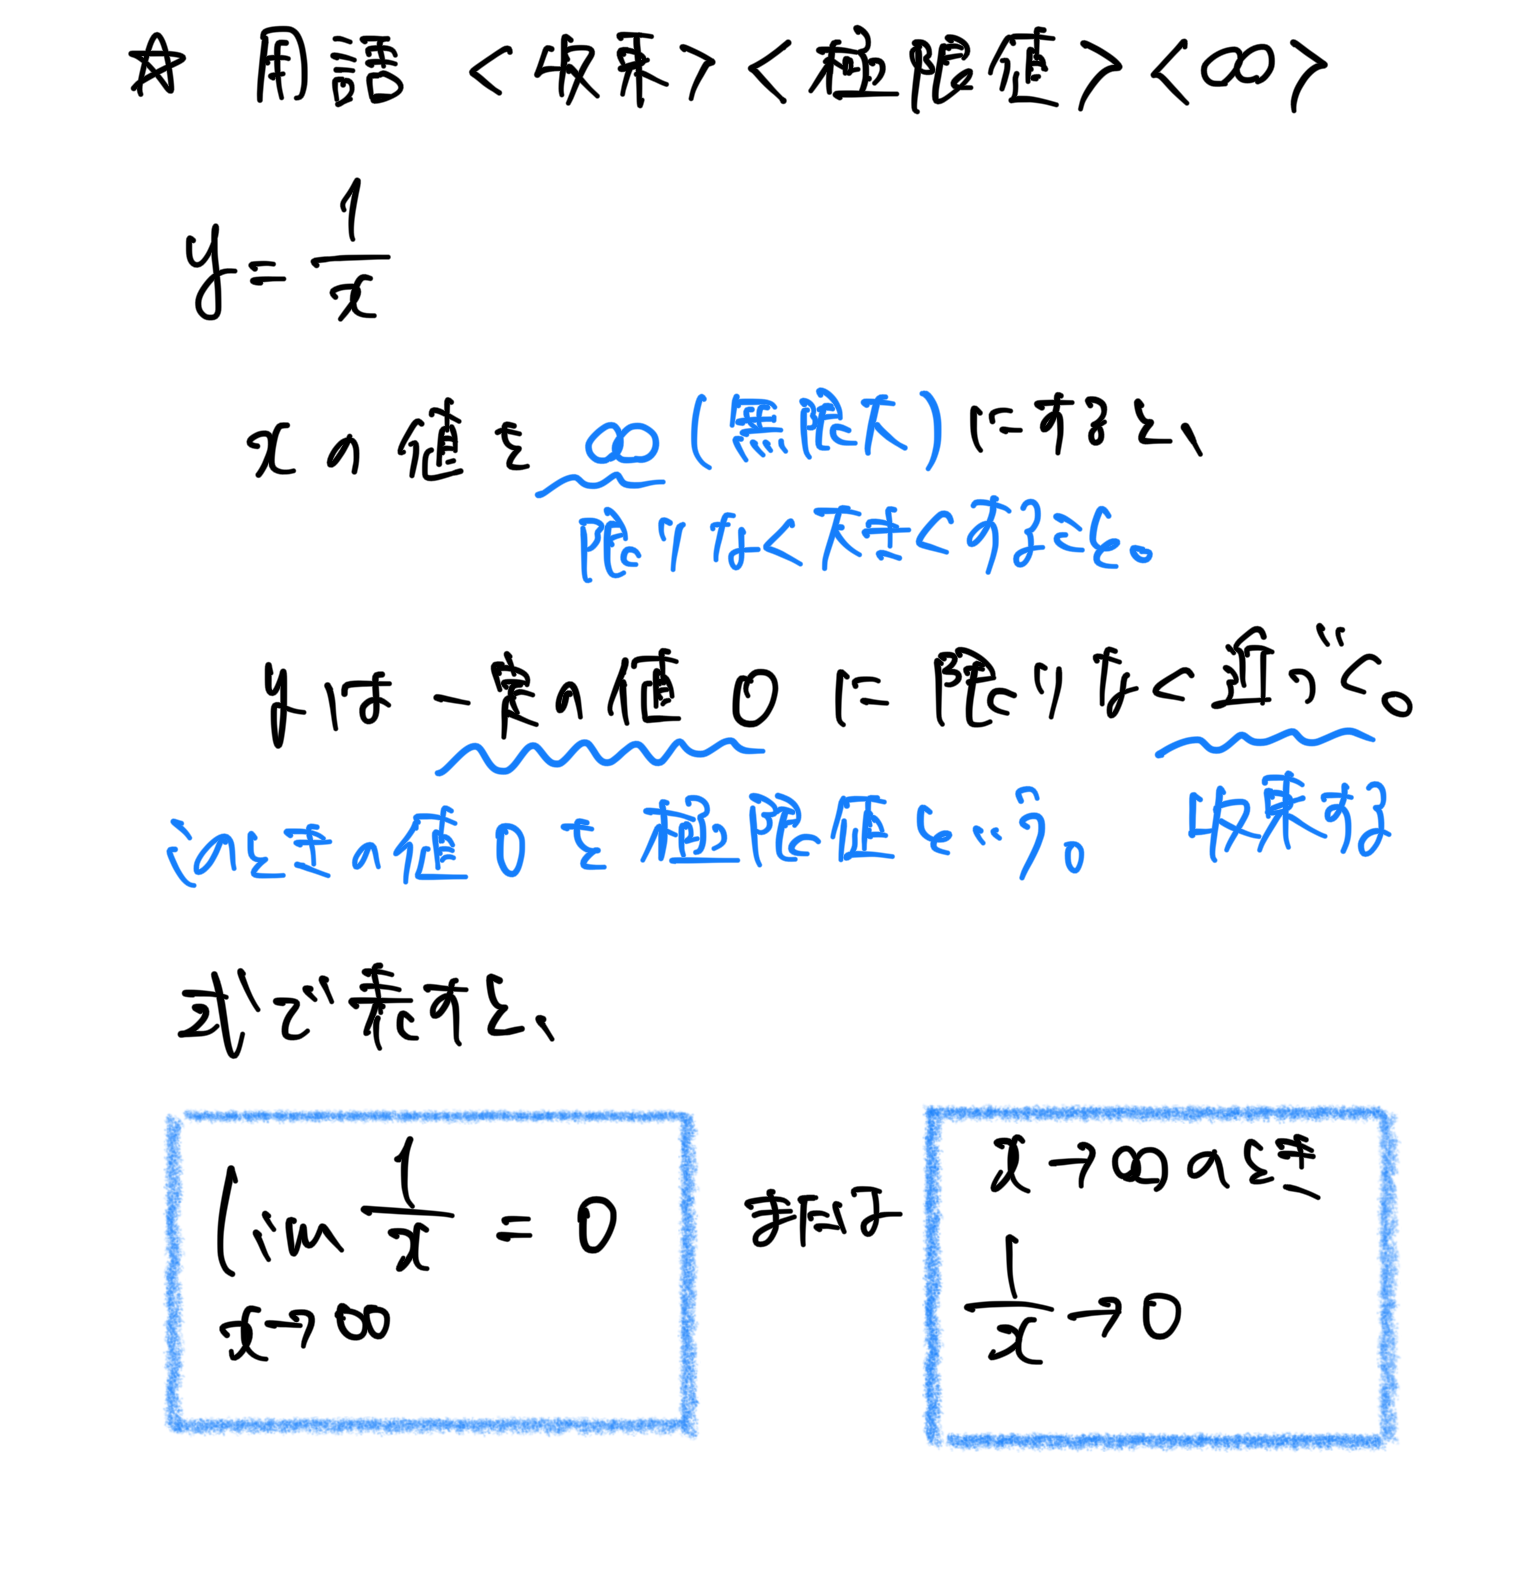 ☆ 用語 <収束><極限値><∞>
y = 1/x
xの値を ∞ (無限大) にすると、
限りなく大きくすること。
yは一定の値 0 に限りなく近づく。
このときの値0を極限値という。 収束する
式で表すと、
lim 1/x = 0
x→∞
または
x→∞のとき
1/x → 0